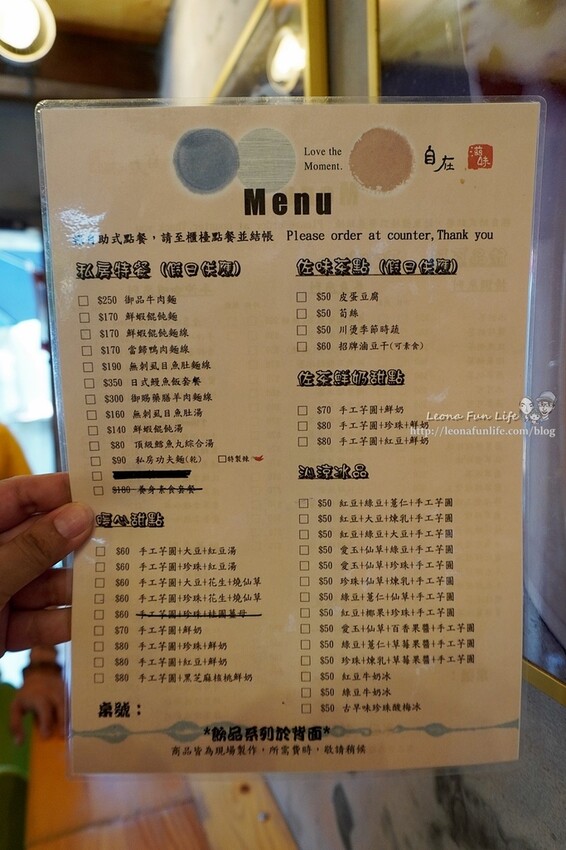 Love the
Moment.
自在
滋味
Menu
助式點餐，請至櫃檯點餐並結帳 Please order at counter,Thank you
私房特餐 (假日供應)
□ $250 御品牛肉麵
□ $170 鮮蝦餛飩麵
□ $170 鮮蝦餛飩麵線
□ $170 當歸鴨肉麵線
□ $190 無刺虱目魚肚麵線
□ $350 日式鰻魚飯套餐
□ $300 御賜藥膳羊肉麵線
□ $160 無刺虱目魚肚湯
□ $140 鮮蝦餛飩湯
□ $80 頂級鱈魚丸綜合湯
□ $90 私房功夫麵(乾) □特製辣
□ $160 養身素食套餐
暖心甜點
□ $60 手工芋圓+大豆+紅豆湯
□ $60 手工芋圓+珍珠+紅豆湯
□ $60 手工芋圓+大豆+花生+燒仙草
□ $60 手工芋圓+珍珠+花生+燒仙草
□ $60 手工芋圓+珍珠+桂圓薑母
□ $70 手工芋圓+鮮奶
□ $80 手工芋圓+珍珠+鮮奶
□ $80 手工芋圓+紅豆+鮮奶
□ $80 手工芋圓+黑芝麻核桃鮮奶
桌號：
佐味茶點 (假日供應)
□ $50 皮蛋豆腐
□ $50 筍絲
□ $50 川燙季節時蔬
□ $60 招牌滷豆干(可素食)
佐茶鮮奶甜點
□ $70 手工芋圓+鮮奶
□ $80 手工芋圓+珍珠+鮮奶
□ $80 手工芋圓+紅豆+鮮奶
沁涼冰品
□ $50 紅豆+綠豆+薏仁+手工芋圓
□ $50 紅豆+大豆+煉乳+手工芋圓
□ $50 紅豆+綠豆+大豆+手工芋圓
□ $50 愛玉+仙草+綠豆+手工芋圓
□ $50 愛玉+仙草+珍珠+手工芋圓
□ $50 珍珠+仙草+煉乳+手工芋圓
□ $50 綠豆+薏仁+仙草+手工芋圓
□ $50 紅豆+椰果+珍珠+手工芋圓
□ $50 愛玉+仙草+百香果醬+手工芋圓
□ $50 綠豆+薏仁+草莓果醬+手工芋圓
□ $50 珍珠+煉乳+草莓果醬+手工芋圓
□ $50 紅豆牛奶冰
□ $50 綠豆牛奶冰
□ $50 古早味珍珠酸梅冰
*飲品系列於背面*
商品皆為現場製作，所需費時，敬請稍候
Leona Fun Life
http://leonafunlife.com/blog